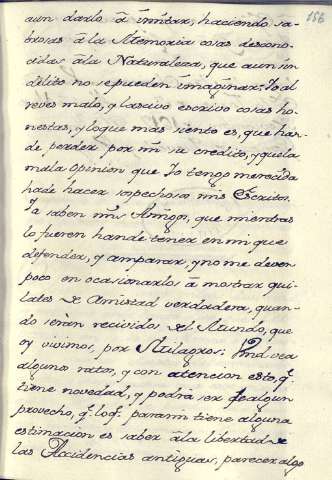 156
aun darlo â imitar, haciendo sa-
brosas â la Memoria cosas descono-
cidas âla Naturaleza, que aun in
delito no se pueden imaginar: Yo al
reves malo, y lascivo escrivo cosas ho-
nestas, y loque mas siento es, que han
de perder por mi su credito, y quela
mala Opinion que Yo tengo merecida
hade hacer sospechosos mis Escritos.
Ya saben mis Amigos, que mientras
lo fueren hande tener en mi que
defender, y amparar, y no me deven
poco en ocasionarlos â mostrar qui-
lates de Amistad verdadera, quan-
do seràn recividos del Mundo, que
oy vivimos, por Milagros: Vmd vea
algunos ratos, y con atencion esto, q.
tiene novedad, y podrà ser de algun
provecho, q. lo q. para mi tiene alguna
estimacion es saber âla libertad de
las Accidencias antiguas, parecer algo